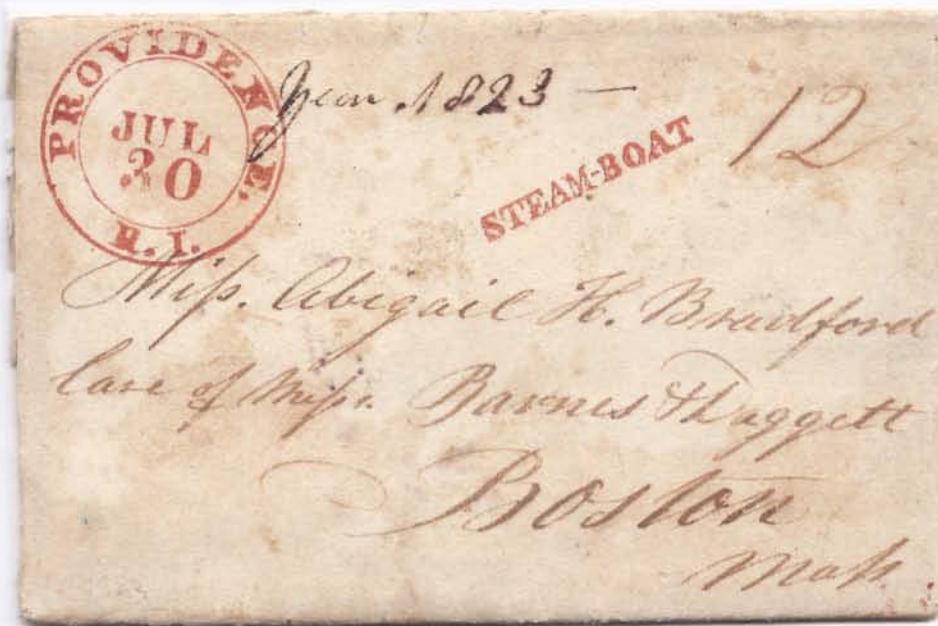 PROVIDENCE.
JUL
30
R.I.
Year 1823 —
STEAM-BOAT
12
Miss. Abigail H. Bradford
Care of Miss. Barnes & Daggett
Boston
Mass.